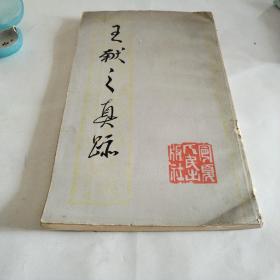 王献之真跡
宁夏
人民出
版社